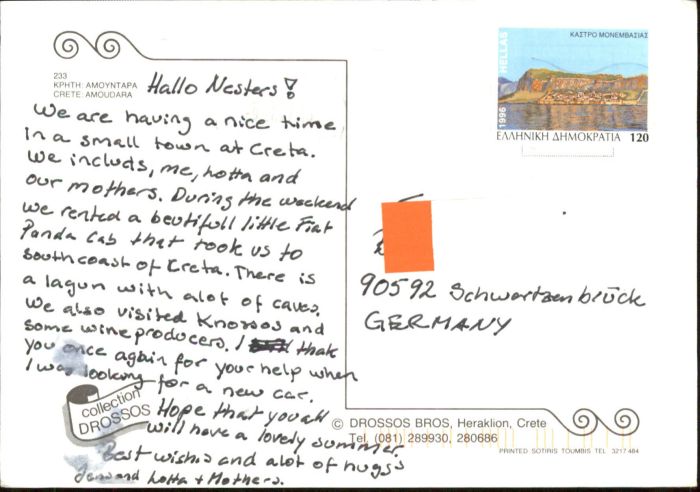 233
ΚΡΗΤΗ: ΑΜΟΥΝΤΑΡΑ
CRETE: AMOUDARA
Hallo Nesters!
We are having a nice time
in a small town at Creta.
We includs, me, Lotta and
our mothers. During the weekend
we rented a beutifull little Fiat
Panda Cab that took us to
southcoast of Creta. There is
a lagun with alot of caves.
We also visited Knossos and
some wine producers. I thank
you once again for your help when
I was looking for a new car.
Hope that you all
will have a lovely summer.
Best wishis and alot of huggs
and Lotta + Mothers.
collection
DROSSOS
HELLAS
1996
ΚΑΣΤΡΟ ΜΟΝΕΜΒΑΣΙΑΣ
ΕΛΛΗΝΙΚΗ ΔΗΜΟΚΡΑΤΙΑ 120
90592 Schwartzenbrück
GERMANY
© DROSSOS BROS, Heraklion, Crete
Tel. (081) 289930, 280686
PRINTED SOTIRIS TOUMBIS TEL 3217 484